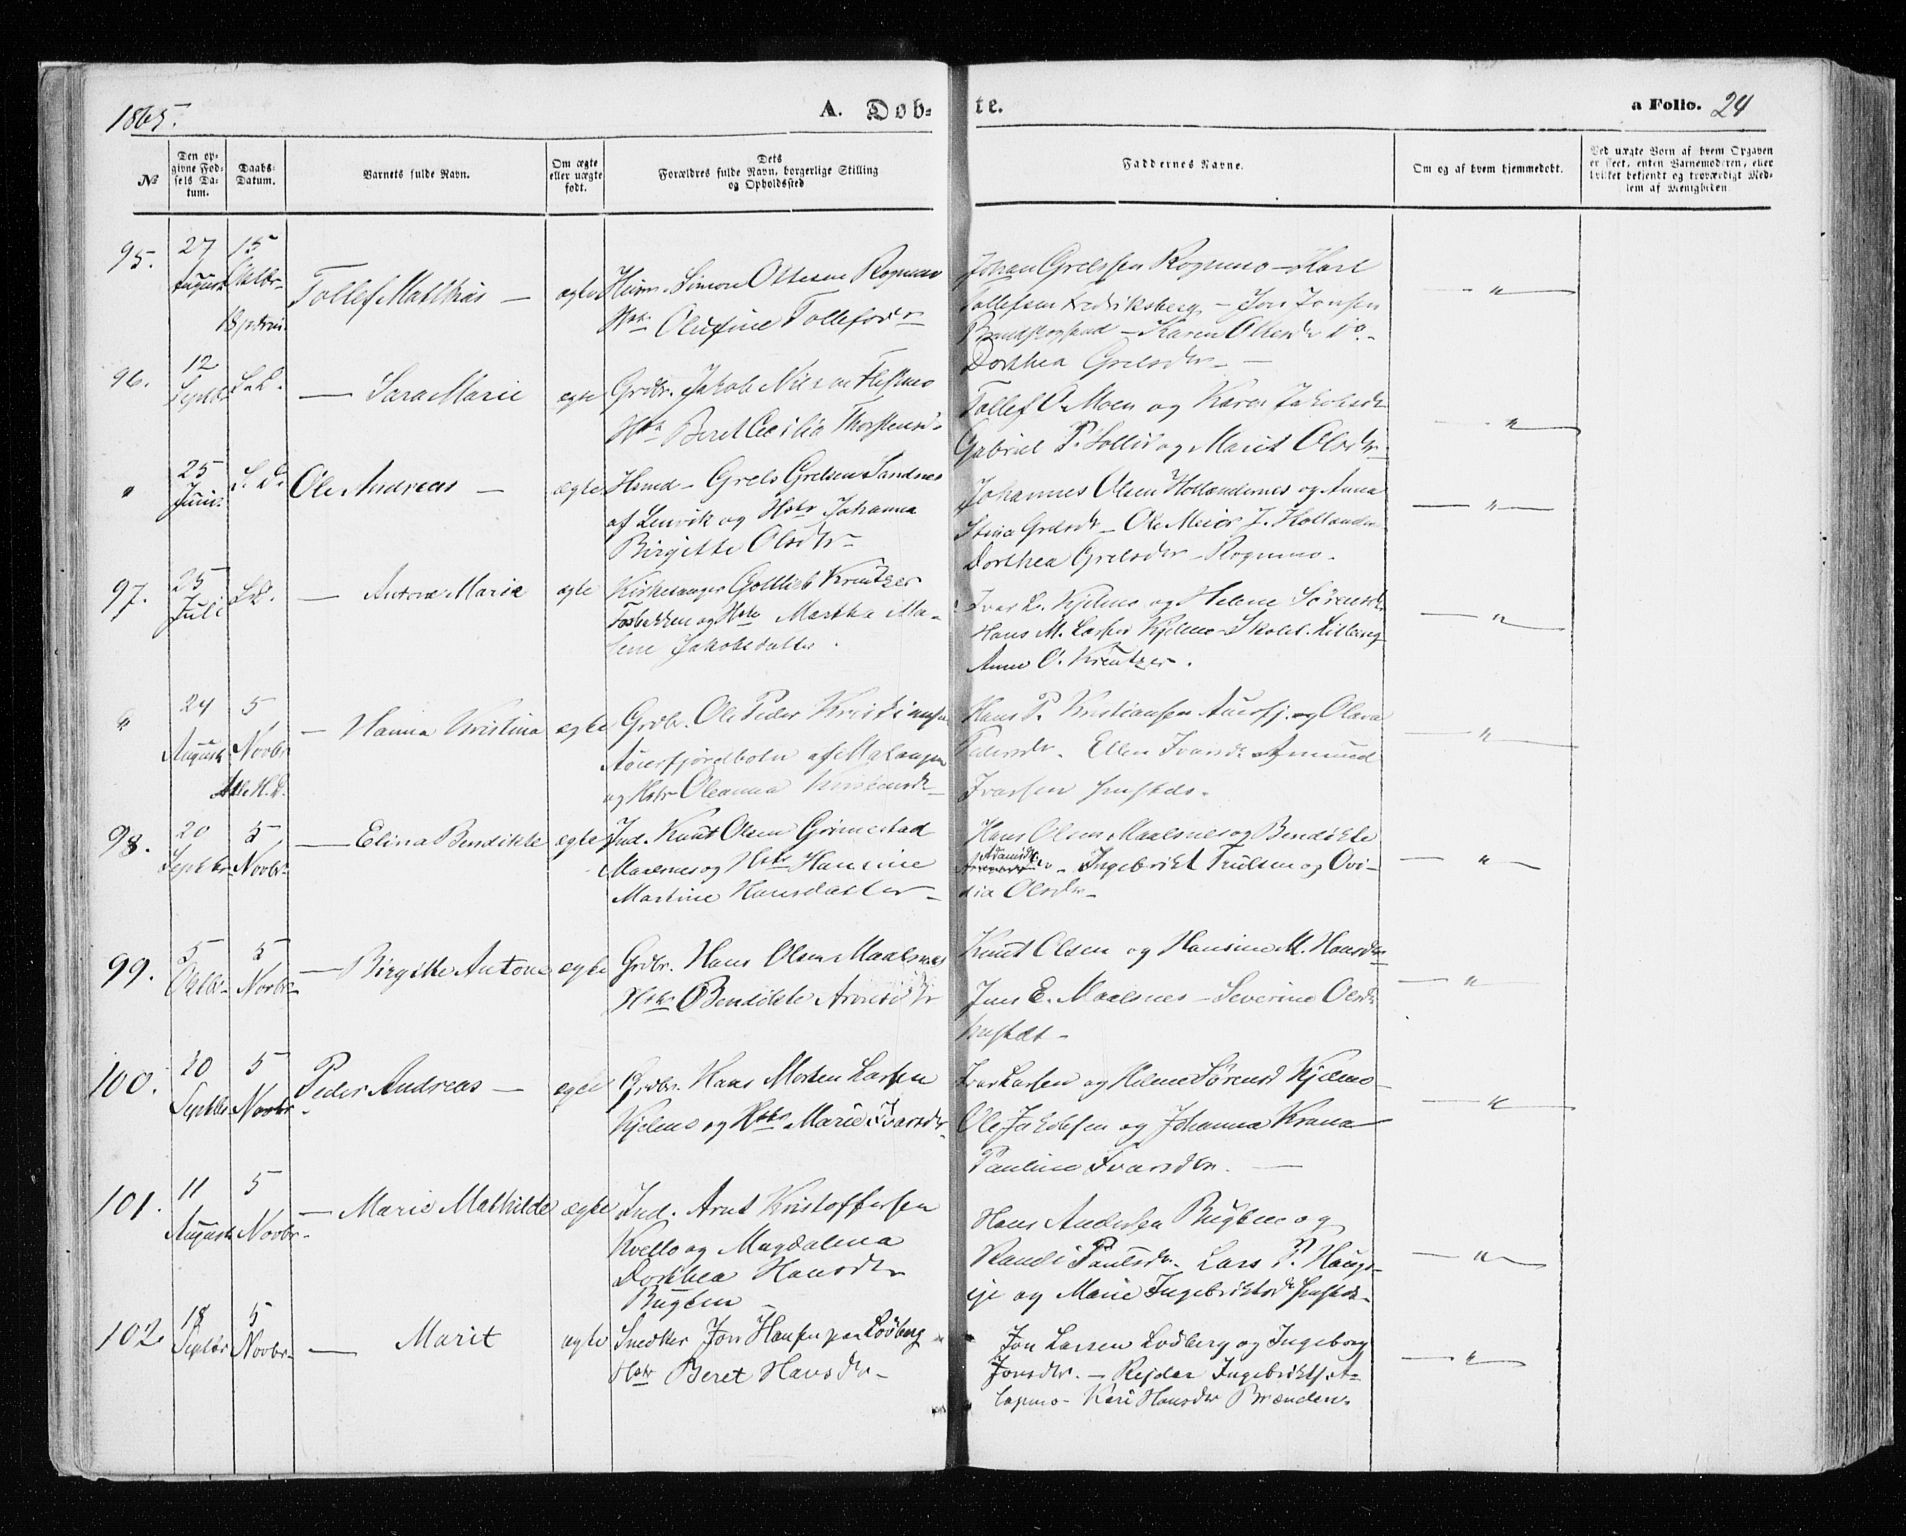 1865.
A. Døb-
te.
a Folio. 24
No
Den op-
givne Fød-
sels Da-
tum.
Daabs-
Datum.
Barnets fulde Navn.
Om ægte
eller uægte
født.
Dets
Forældres fulde Navn, borgerlige Stilling
og Opholdssted
Faddernes Navne.
Om og af hvem hjemmedøbt.
Ved uægte Børn af hvem Opgaven
er skeet, enten Barnemoderen, eller
hvilket bekjendt og troværdigt Med-
lem af Menigheden.
95.
27
August
15
Oktbr
Tollef Mathias —
ægte
Simon Ottesen Rognmo
Hstr Olufine Tollefsdr
Johan Grelssen Rognmo — Karl
Tollefsen Fredriksberg, — Jon Jonsen
— Karen Olsdr
Dorthea Grelsdr —
— " —
96.
12
Septbr
S. D.
— Sara Marie
ægte
Grdbr. Jakob Nilsen
Hstr Beret Cecilia Thorstensd.
Tollef O. Moen og Karen Jakobsdr
Gabriel P. Sollid og Marit Olsdr
— " —
"
25
Juni
S. D.
Ole Andreas —
ægte
Hmd — Grels Grelsen Sandnes
af Lenvik og Hstr Johanna
Birgitte Olsdr
Johannes Olsen Hollændernes og Anna
Stina Grelsdr — Ole Meier J. Hollænder
Dorthea Grelsdr — Rognmo.
— " —
97.
25
Juli
S. D.
— Antone Marie
ægte
Kirkesanger Gottlieb Kreutzer
Fosbakken og Hstr Martha Ma-
lene Jakobsdatter.
Ivar L. Kjelmo og Helene Sørensdr
Hans M. Larsen Kjelmo — Skolel.
Anne O. Kreutzer.
— " —
"
24
August
5
Novbr
— Hanna Kristina
ægte
Grdbr. Ole Peder Kristiansen
Aursfjordbotn af Malangen
og Hstr Oleanna Kristensdr
Hans P. Kristiansen Aursfj. og Olava
Pedersdr. Ellen Ivarsdr Amund
Ivarsen
— " —
98.
20
Septbr
5
Novbr
— Elina Bendikte
ægte
Ind. Knut Olsen Grimestad
Maalsnes og Hstr Hansine
Martine Hansdatter —
Hans Olsen Maalsnes og Bendikte
Adamsdr — Ingebrikt Trulsen og Ovi-
dia Olsdr —
— " —
99.
5
Oktbr
5
Novbr
— Birgitte Antone
ægte
Grdbr. Hans Olsen Maalsnes
Hstr Bendikte
Knut Olsen og Hansine M. Hansdr
Jens E. Maalsnes — Severine Olsdr
— " —
100.
20
Septbr
5
Novbr
Peder Andreas —
ægte
Grdbr. Hans Morten Larsen
Kjelmo og Hstr Marie Ivarsdr
Ivar Larsen og Helene Sørensd Kjelmo
Ole Jakobsen og Johanna Krana
Pauline Ivarsdr. —
— " —
101.
11
August
5
Novbr
— Marie Mathilde
ægte
Ind. Arnt Kristoffersen
Kvello og Magdalena
Dorthea Hansdr
Bugten —
Hans Andersen Bugten og
Randi Paulsdr. Lars P. Haugs-
eje og Marie Ingebriktsdr
— " —
102
18
Septbr
5
Novbr
— Marit
ægte
Snedker Jon Hansen paa Lodberg
Hstr Beret Hansdr —
Jon Larsen Lodberg og Ingeborg
Jonsdr. — Rejdar Ingebriktsen
Kari Hansdr Brænden.
— " —